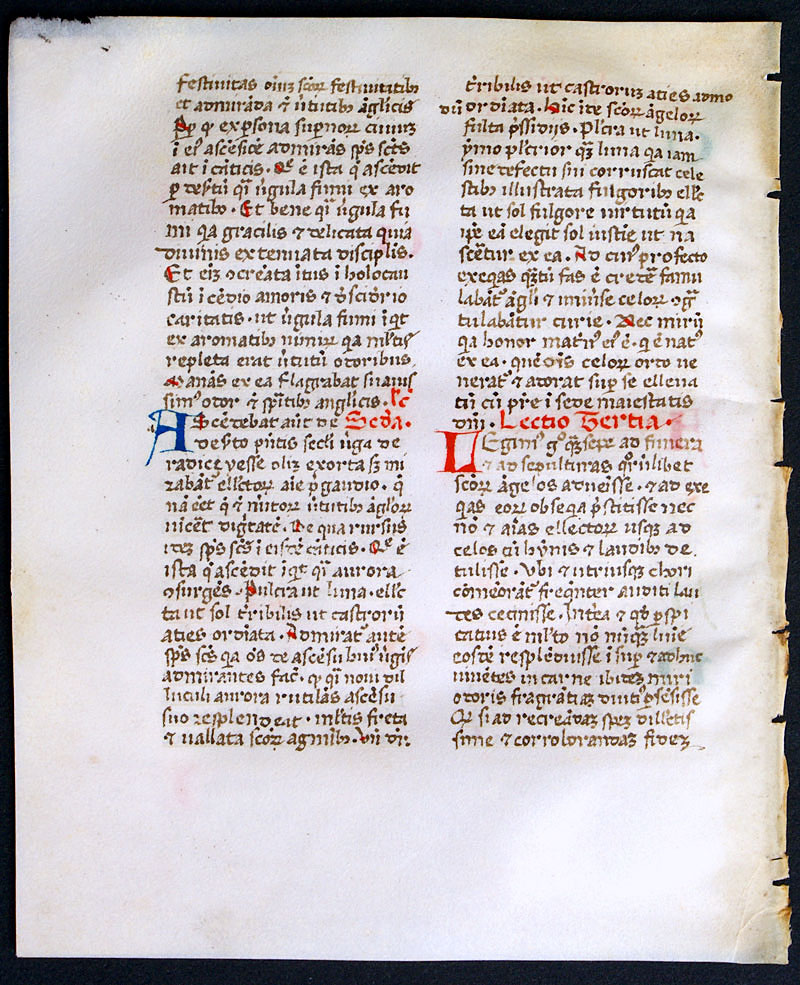 festiuitas oīuȝ scōꝝ festiuitatibꝫ
et admirāda ē ūtutibꝫ āglicis
ꝙ ex persona supnoꝝ ciuiuȝ
ī eiꝰ ascēsiōe admirās sps scts
ait ī cāticis. Q̄ ē ista q̄ ascēdit
p desertū q̄i ūgula fumi ex aro
matibꝫ. Et bene q̄i ūgula fu
mi q̄a gracilis ⁊ delicata quia
diuinis extenuata disciplīs.
Et eiȝ ↄcreata ītus ī holocau
stū īcēdio amoris ⁊ dsiderio
caritatis. ut ūgula fumi īq̄t
ex aromatibꝫ nimiꝝ q̄a ml̄tis
repleta erat ūtutū odoribus.
Manās ex ea flagrabat suauis
simꝰ odor ⁊ sp̄itibꝫ anglicis. lc̄
Ascēdebat aūt de Scd̄a.
deserto pn̄tis secli ūga de
radice yesse oliȝ exorta sꝫ mi
rabāt̄ elēctoꝝ aīe p̄ gaudio. q̄
nā eēt q̄ ⁊ mītoꝝ ūtutibꝫ āgloꝝ
uīcēt digītatē. De qua rursus
ideȝ sps scts ī eisdē cāticis. Q̄ ē
ista q̄ ascēdit īq̄t q̄i aurora
ↄsurgēs. Pulcra ut luna. elēc
ta ut sol t̄ribilis ut castroꝝū
aties ordīata. Admirat̄ autē
sps scts q̄a oēs de ascēsu huiꝰ ūgīs
admirantes fac̄. ꝙ q̄i noui dil
luculi aurora rutilās ascēsu
suo resplendeat. ml̄tis freta
⁊ uallata scōꝝ agmībꝫ. Uñ dr̄.
t̄ribilis ut castroruȝ aties admo
duȝ ordīata. Hic īte scōꝝ āgeloꝝ
fulta p̄ssidiis. Pl̄cra ut luna.
ȳmo pl̄crior q̄ȝ luna q̄a iam
sine defectu sui corruscat cele
stibꝫ illustrata fulgoribꝫ elēc
ta ut sol fulgore uirtutū q̄a
ip̄e eā elegit sol iustīe ut na
scēetur ex ea. Ad cuiꝰ profecto
exeq̄as q̄ȝtū fas ē credē famu
labāt̄ āgli ⁊ uniūse celoꝝ ↄḡ
tulabātur curie. Nec mirū
q̄a honor matris eiꝰ ē. q̄ ē natꝰ
ex ea. quē oīs celoꝝ ordo ue
nerat̄ ⁊ adorat sup se eleua
tū cū pr̄e ī sede maiestatis
diū. Lectio Tertia.
Legimꝰ gͦ q̄ȝ sepe ad funera
⁊ ad sepulturas quoꝯrūlibet
scōꝝ āgelos adueīsse. ⁊ ad exe
q̄as eoꝝ obseq̄a p̄stitisse nec
nō ⁊ aīas electoꝝ usqȝ ad
celos cū hȳnis ⁊ laudibꝫ de
tulisse. Ubi ⁊ utriusqȝ chori
cōmēorāt̄ freq̄nter auditi lau
des cecinisse. Inte̊a ⁊ qd̊ pspi
catius ē ml̄to nō nūq̄ȝ luīe
eosdē resplēduisse ī sup ⁊ adhuc
uiuētes in carne ibideȝ miri
odoris fragrātiaȝ diuti p̄sēsisse
Q̄ si ad recreādaȝ speȝ dillectis
sime ⁊ corroborandaȝ fideȝ